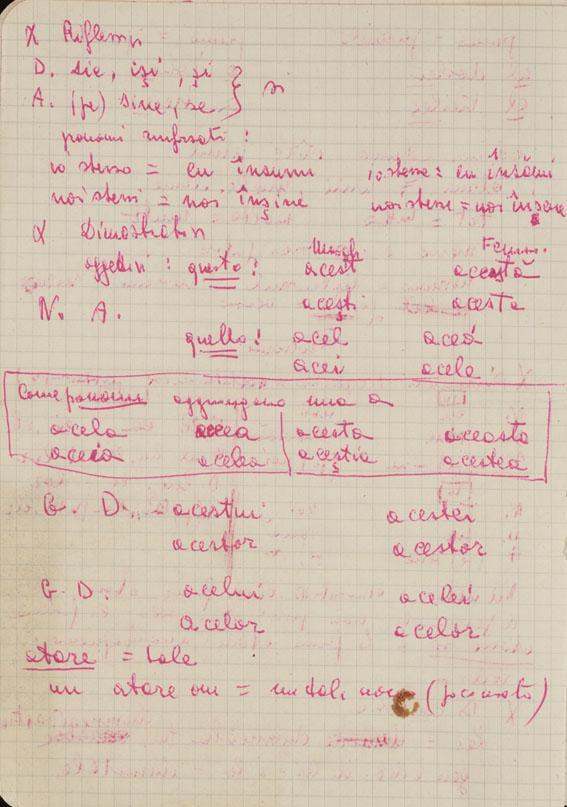 X Riflessivi
D. sie, îşi, şi } si
A. (pe) sine, se
pronomi rinforzati:
io stesso = eu însumi io stessa = eu însămi
noi stessi = noi înşine noi stesse = noi însene
X Dimostrativi
Masch. Femm.
aggettivi: questo: acest această
aceşti aceste
N. A.
quello: acel acea
acei acele
Come pronomi aggiungono una a
acela aceea acesta aceasta
aceia acelea aceştia acestea
G. D. acestui acestei
acestor acestor
G. D. acelui acelei
acelor acelor
atare = tale
un atare om = un tale uomo